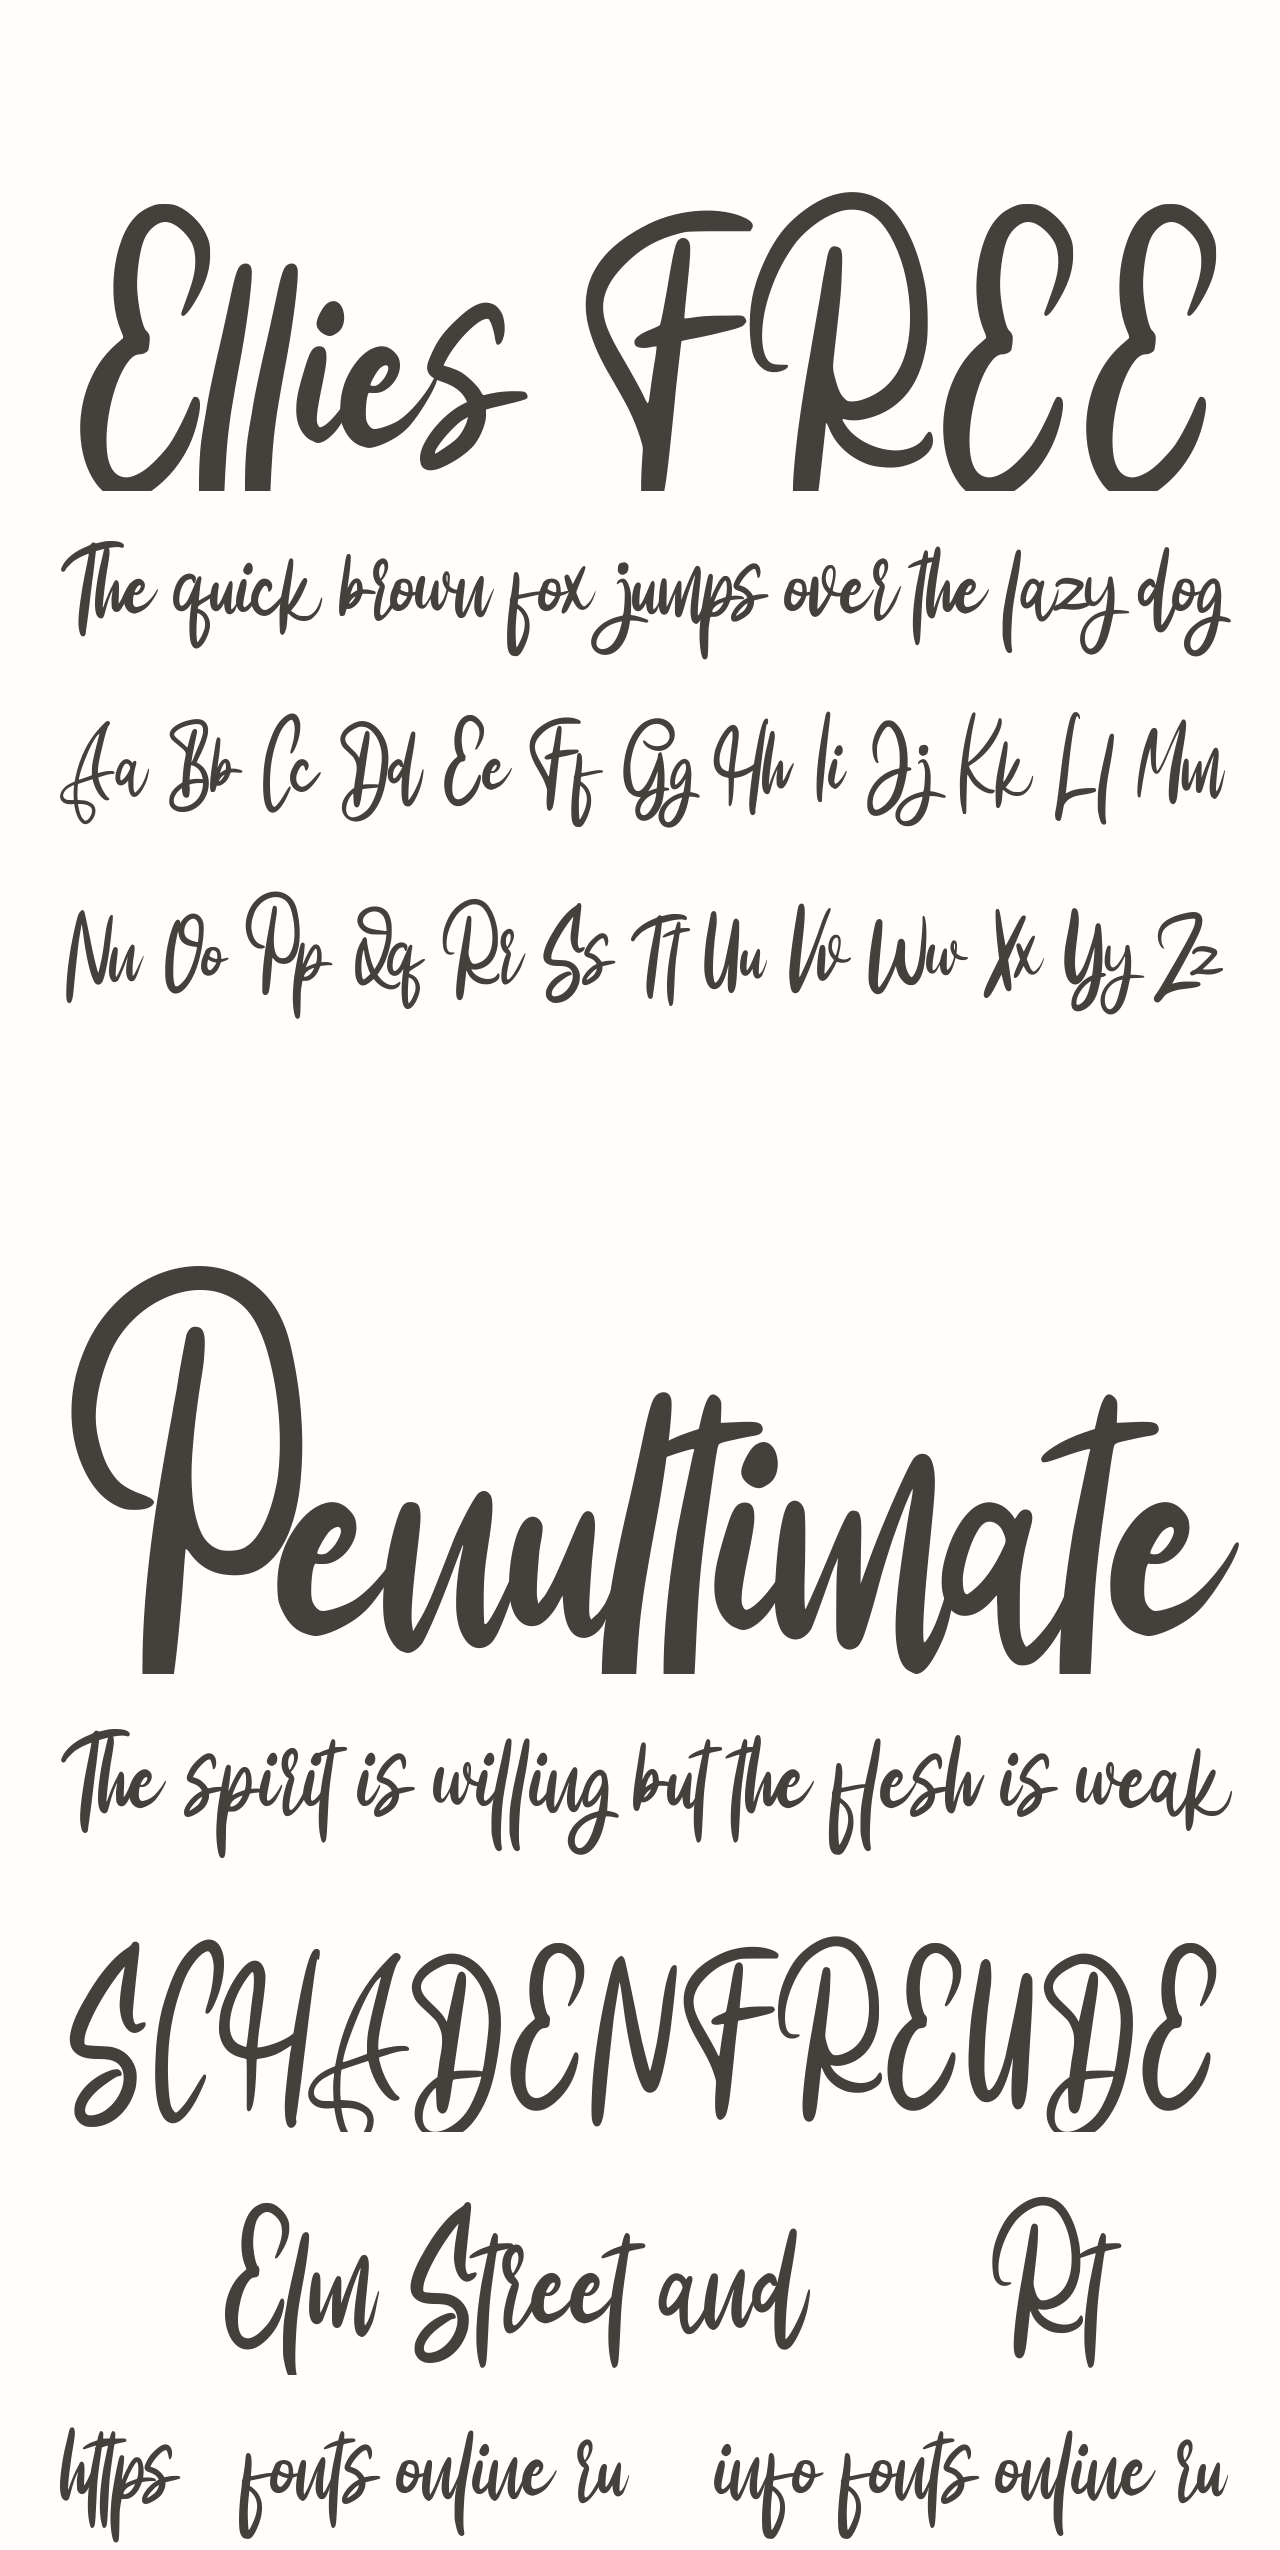 Ellies FREE
The quick brown fox jumps over the lazy dog
Aa Bb Cc Dd Ee Ff Gg Hh Ii Jj Kk Ll Mm
Nn Oo Pp Qq Rr Ss Tt Uu Vv Ww Xx Yy Zz
Penultimate
The spirit is willing but the flesh is weak
SCHADENFREUDE
Elm Street and Rt
https fonts online ru info fonts online ru